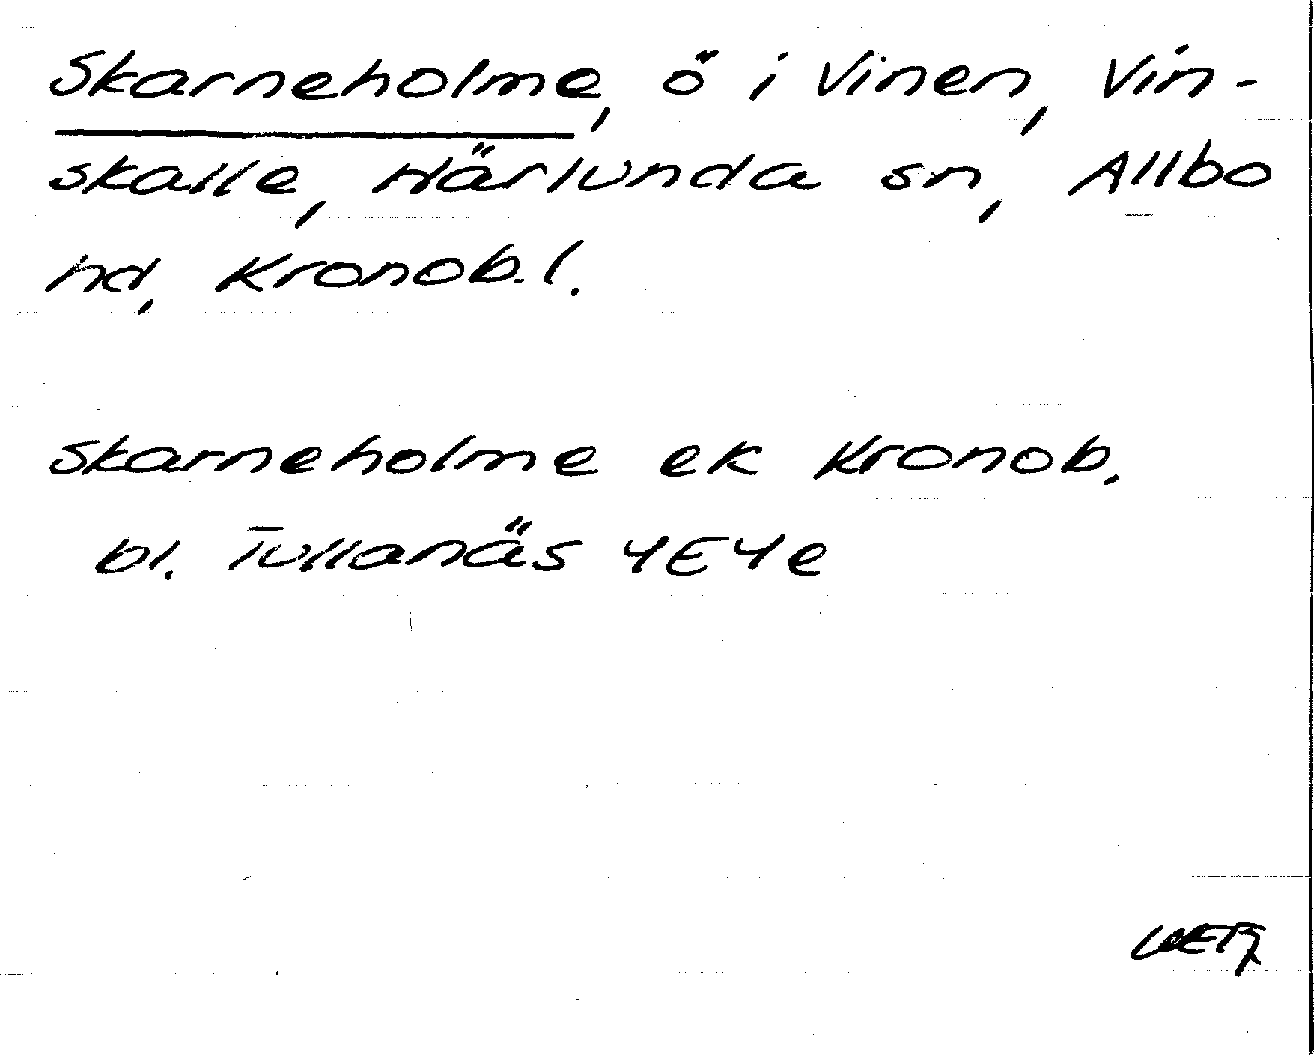 Skarneholme, ö i Vinen, Vin-
skalle, Härlunda sn, Allbo
hd, Kronob. l.
Skarneholme ek Kronob.
bl. Tullanäs 4E4e